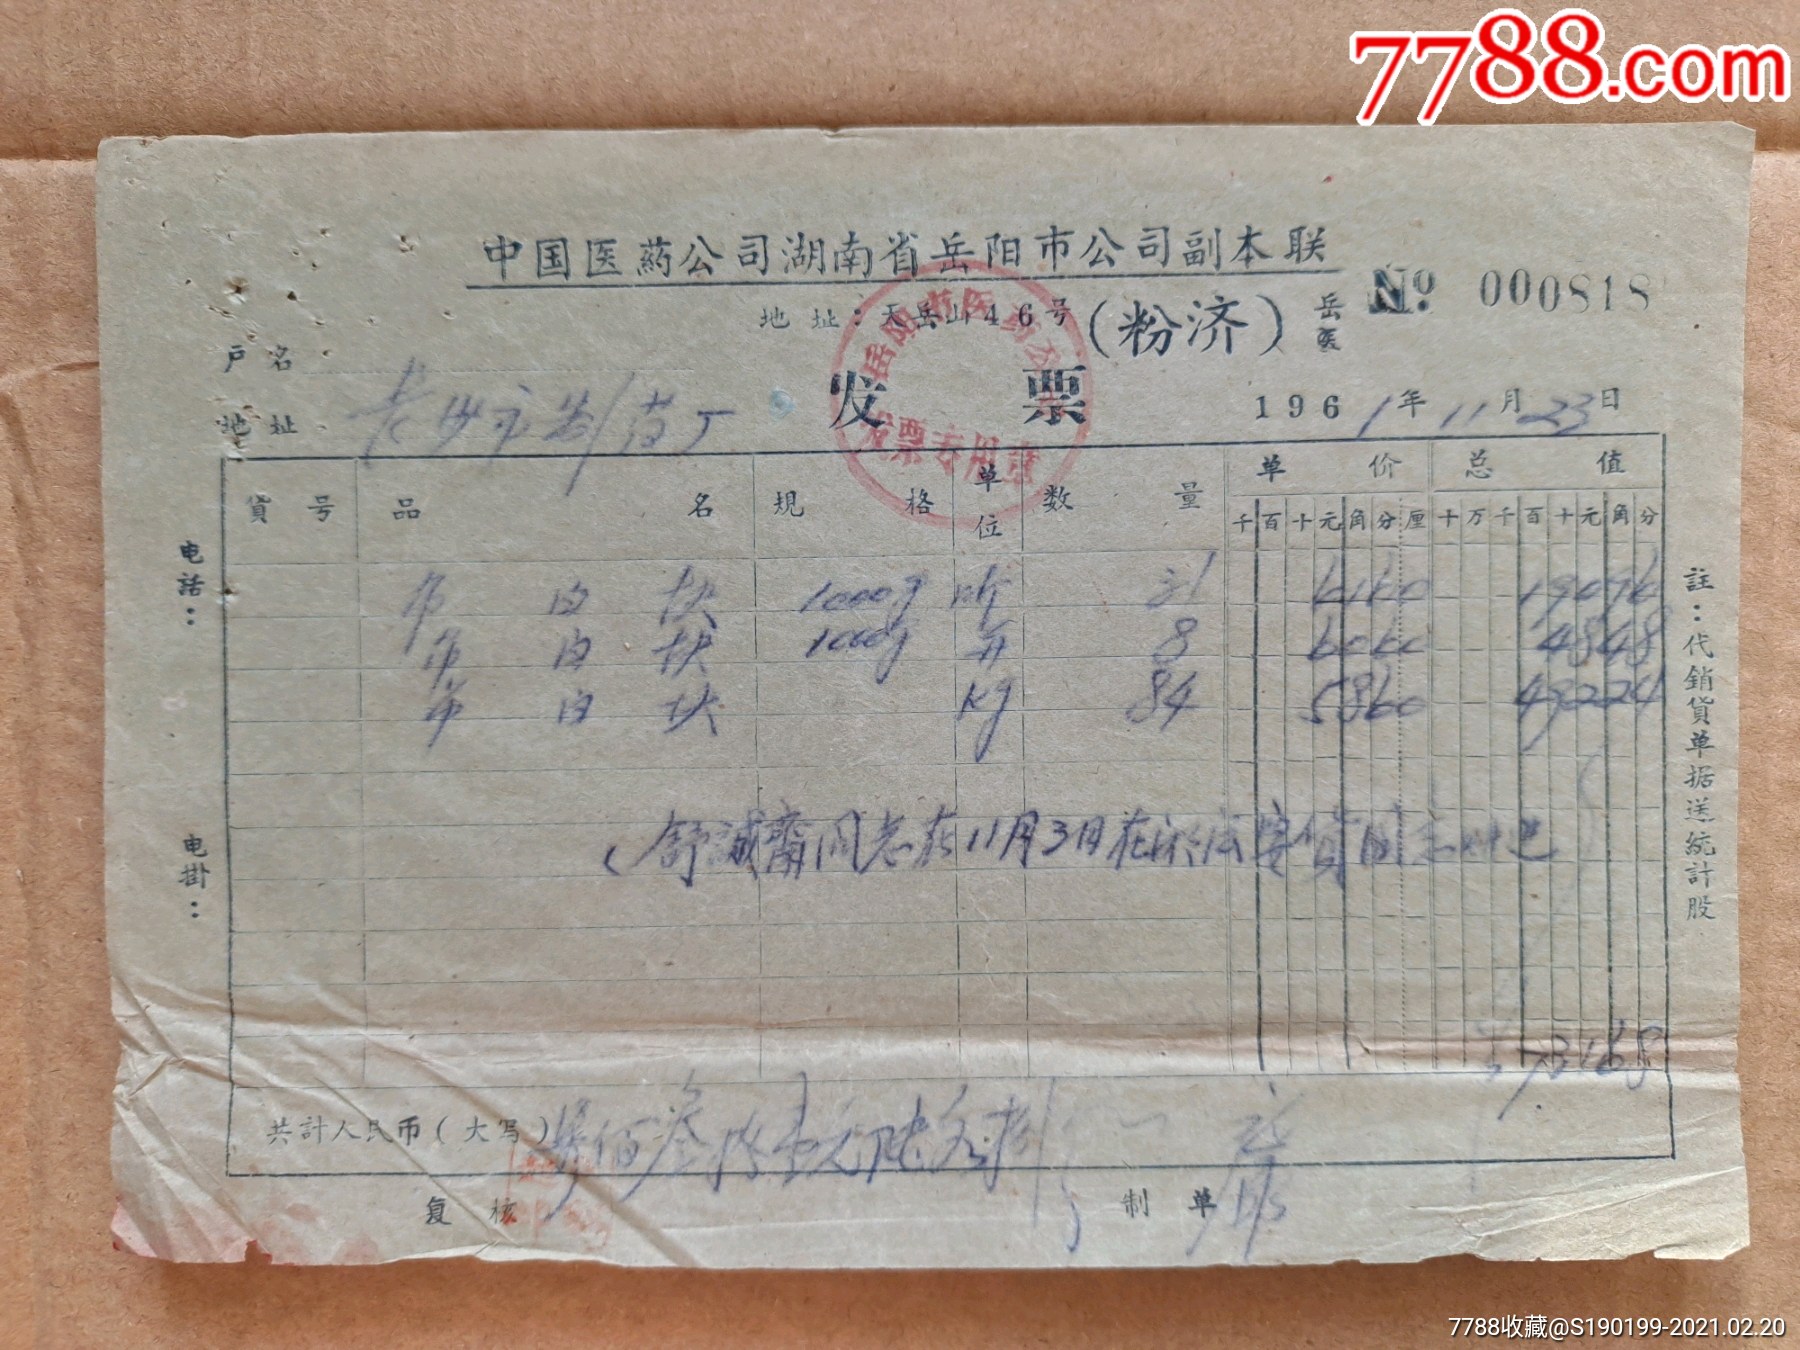 7788.com
中国医药公司湖南省岳阳市公司副本联
地址：天岳山46号
(粉济)
岳医
№ 000818
户名
地址
长沙市制药厂
发票
1961年11月23日
岳阳市医药公司
发票专用章
貨号 品名 規格 单位 数量 单价 总值
千百十元角分厘 十万千百十元角分
白块 1000g 听 31 6160 19096
白块 1000g 8 6060 4848
白块 kg 84 5860 49224
(舒诚斋同志在11月3日在
73168
共計人民币(大写) 柒佰叁拾壹元陆角捌分
复核
制单
电話：
电掛：
註：代销貨单据送統計股
7788收藏@S190199-2021.02.20